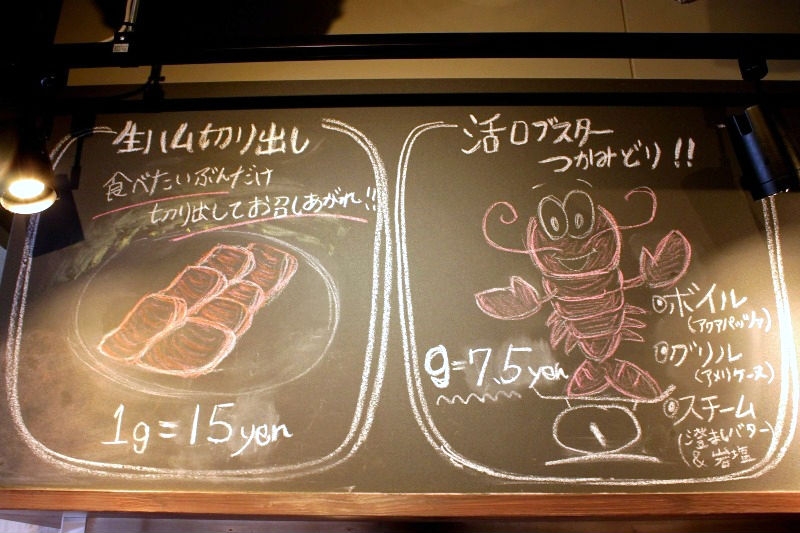 生ハム切り出し
食べたいぶんだけ
切り出してお召しあがれ!!
1g=15yen
活ロブスター
つかみどり!!
g=7.5yen
◎ボイル
(アクアパッツァ)
◎グリル
(アメリケーヌ)
◎スチーム
(澄ましバター
& 岩塩)